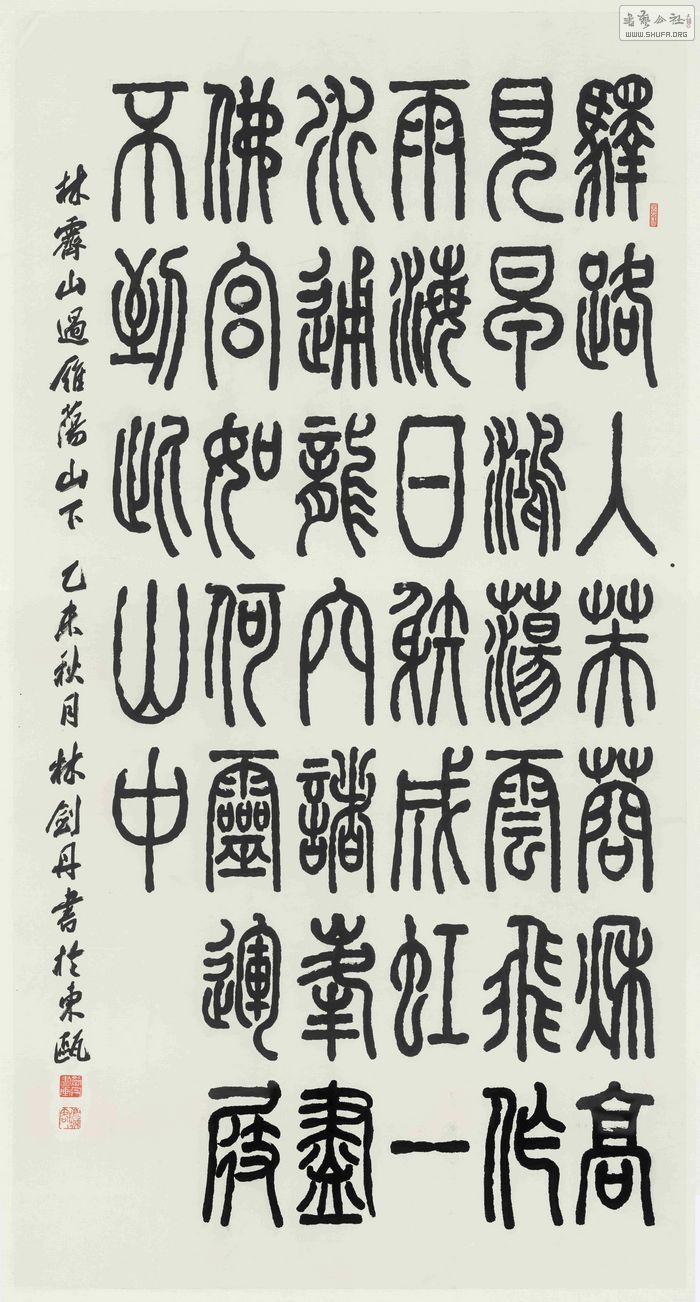 驛路入芙蓉秋高
見早鴻蕩雲飛作
雨海日射成虹一
水通龍穴諸峯盡
佛宮如何靈運屐
不到此山中
林霽山過雁蕩山下 乙未秋月林劍丹書於東甌
書藝公社
WWW.SHUFA.ORG